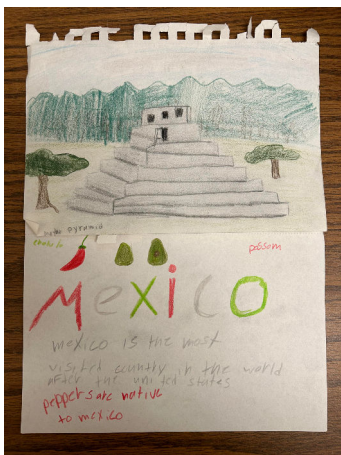 pyramid
possom
Mexico
mexico is the most
visited country in the world
after the united states
peppers are native
to mexico